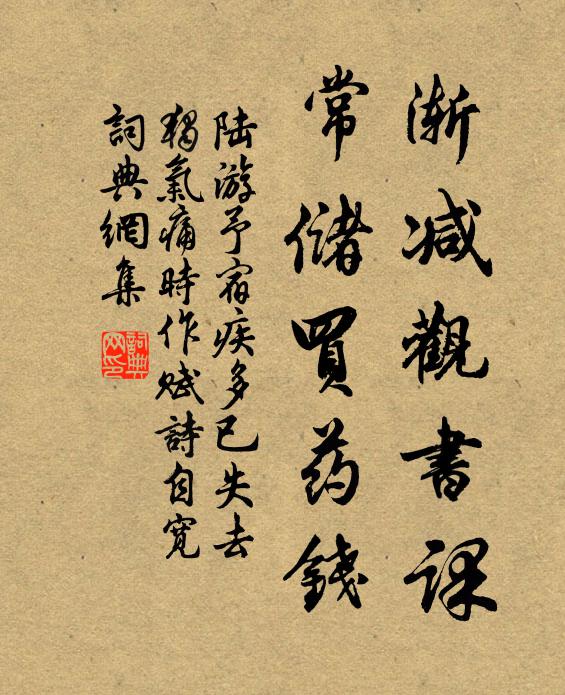 渐减觀書课
常儲買药錢
陆游予宿疾多已失去
獨氣痛時作赋詩自寬
詞典網集
詞典
网印